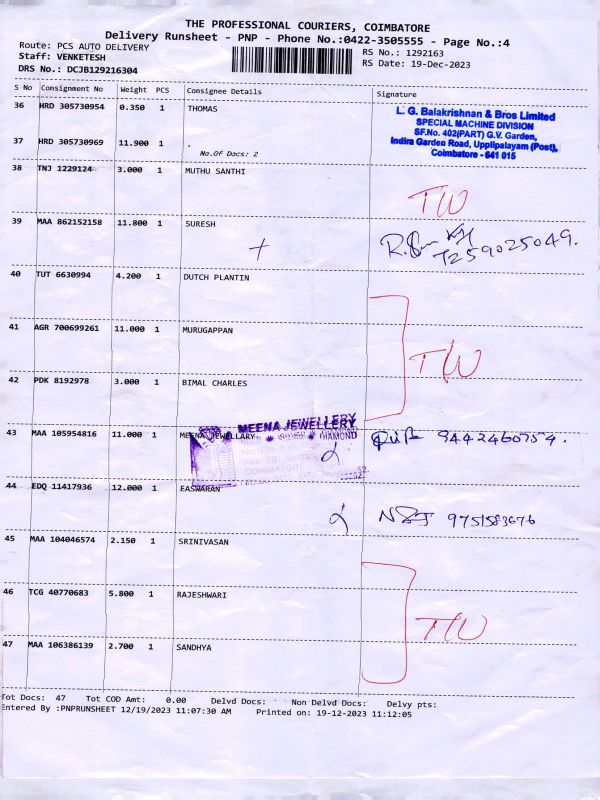 THE PROFESSIONAL COURIERS, COIMBATORE
Delivery Runsheet - PNP - Phone No.:0422-3505555 - Page No.:4
Route: PCS AUTO DELIVERY RS No.: 1292163
Staff: VENKETESH RS Date: 19-Dec-2023
DRS No.: DCJB129216304
S No Consignment No Weight PCS Consignee Details Signature
36 HRD 305730954 0.350 1 THOMAS
L. G. Balakrishnan & Bros Limited
SPECIAL MACHINE DIVISION
SF.No. 402(PART) G.V. Garden,
Indira Garden Road, Upplipalayam (Post),
Coimbatore - 641 015
37 HRD 305730969 11.900 1 .
No.Of Docs: 2
38 TNJ 1229124 3.000 1 MUTHU SANTHI
T/W
39 MAA 862152158 11.800 1 SURESH
7259025049.
40 TUT 6630994 4.200 1 DUTCH PLANTIN
41 AGR 700699261 11.000 1 MURUGAPPAN
T/W
42 PDK 8192978 3.000 1 BIMAL CHARLES
43 MAA 105954816 11.000 1 MEENA JEWELLARY
MEENA JEWELLERY
DIAMOND
COIMBATORE
44 EDQ 11417936 12.000 1 EASWARAN
9751583676
45 MAA 104046574 2.150 1 SRINIVASAN
46 TCG 40770683 5.800 1 RAJESHWARI
T/W
47 MAA 106386139 2.700 1 SANDHYA
Tot Docs: 47 Tot COD Amt: 0.00 Delvd Docs: Non Delvd Docs: Delvy pts:
Entered By :PNPRUNSHEET 12/19/2023 11:07:30 AM Printed on: 19-12-2023 11:12:05